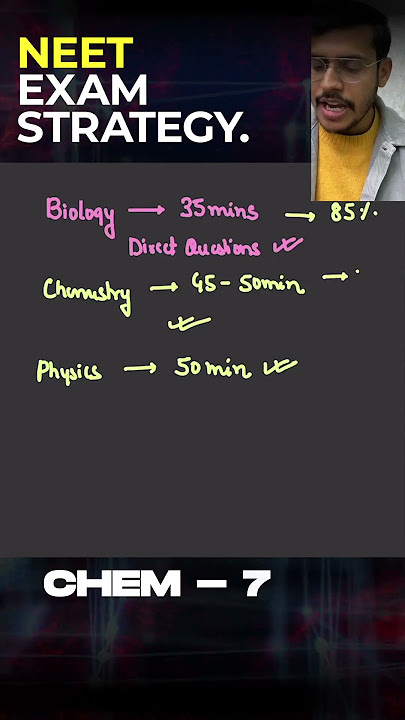 NEET
EXAM
STRATEGY.
Biology → 35mins → 85%.
Direct Questions
Chemistry → 45-50min →
Physics → 50min
CHEM - 7